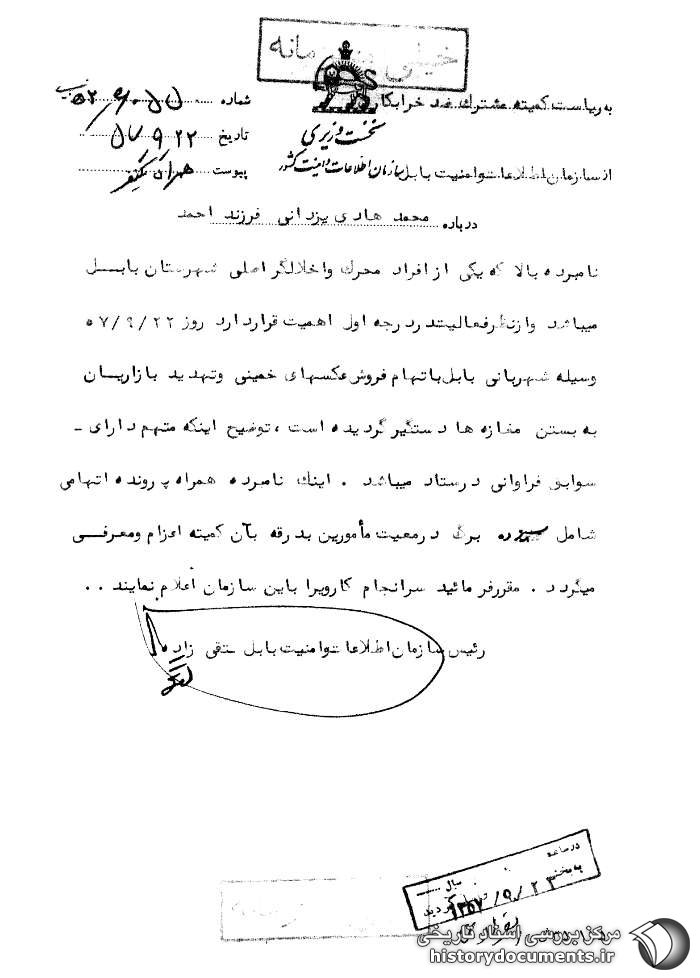 خیلی محرمانه
به ریاست کمیته مشترک ضد خرابکاری
شماره
نخست وزیری
تاریخ ۵۷/۹/۲۲
از سازمان اطلاعات و امنیت بابل
سازمان اطلاعات و امنیت کشور
پیوست
درباره محمد هادی یزدانی فرزند احمد
نامبرده بالا که یکی از افراد محرک و اخلالگر اصلی شهرستان بابل
میباشد و از نظر فعالیت در درجه اول اهمیت قرار دارد روز ۵۷/۹/۲۲
وسیله شهربانی بابل باتهام فروش عکسهای خمینی و تهدید بازاریان
به بستن مغازه ها دستگیر گردیده است ، توضیح اینکه متهم دارای -
سوابق فراوانی در ستاد میباشد . اینک نامبرده همراه پرونده اتهامی
شامل برگ در معیت مأمورین بدرقه بآن کمیته اعزام و معرفی
میگردد . مقرر فرمائید سرانجام کار ویرا باین سازمان اعلام نمایند . .
رئیس سازمان اطلاعات و امنیت بابل تقی زاده
در ساعت
به بخش
سال
۱۳۵۷/۹/۲۳
مرکز بررسی اسناد تاریخی
historydocuments.ir